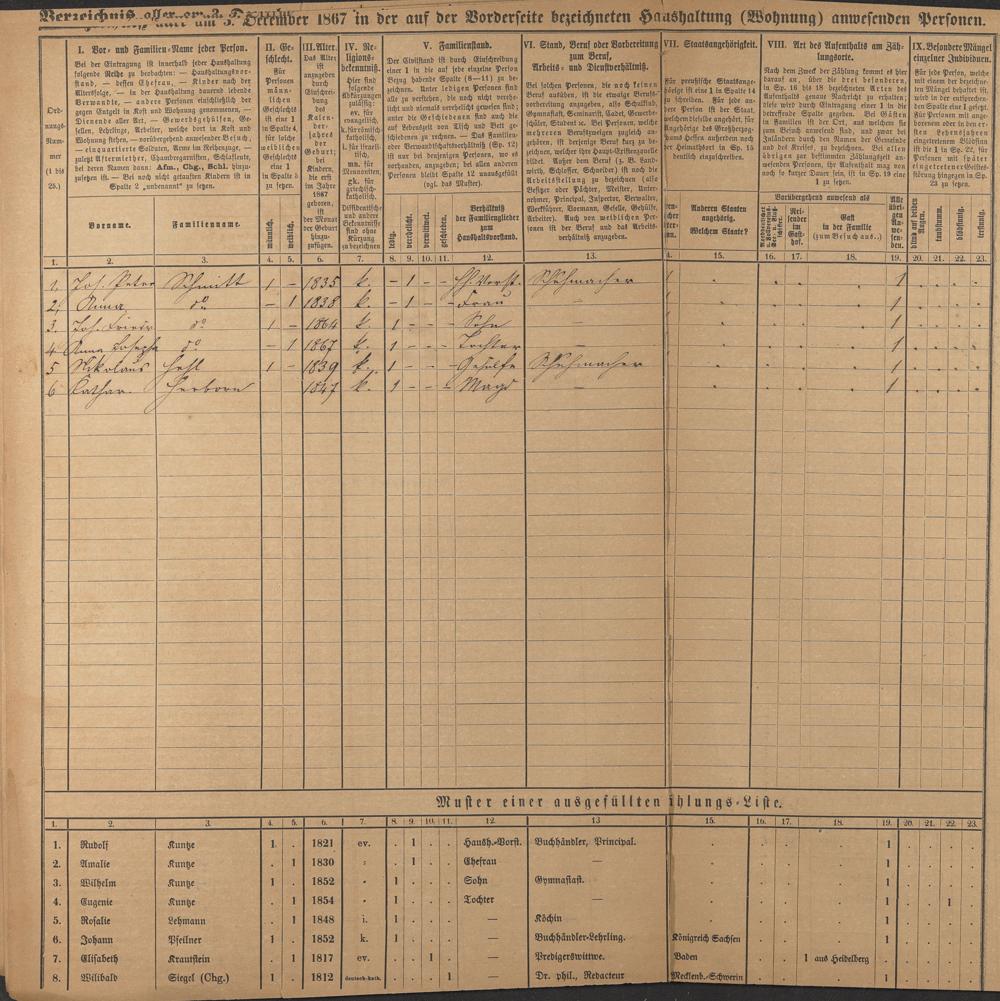 Verzeichnis aller am 3. December 1867 in der auf der Vorderseite bezeichneten Haushaltung (Wohnung) anwesenden Personen.
Ord-
nungs-
Num-
mer
(1 bis
25.)
I. Vor- und Familien-Name jeder Person.
Bei der Eintragung ist innerhalb jeder Haushaltung
folgende Reihe zu beobachten: — Haushaltungsvor-
stand, — dessen Ehefrau, — Kinder nach der
Altersfolge, — in der Haushaltung dauernd lebende
Verwandte, — andere Personen einschließlich der
gegen Entgelt in Kost und Wohnung genommenen, —
Dienende aller Art, — Gewerbsgehülfen, Ge-
sellen, Lehrlinge, Arbeiter, welche dort in Kost und
Wohnung stehen, — vorübergehend anwesender Besuch,
— einquartierte Soldaten, Arme im Reihenzuge, —
zuletzt Aftermiether, Chambregarnisten, Schlafleute,
bei deren Namen dann: Afm., Chg., Schl. hinzu-
zusetzen ist. — Bei noch nicht getauften Kindern ist in
Spalte 2 „unbenannt“ zu setzen.
Vorname.
Familienname.
II. Ge-
schlecht.
Für
Personen
männ-
lichen
Geschlechts
ist eine 1
in Spalte 4,
für solche
weiblichen
Geschlechts
eine 1
in Spalte 5
zu setzen.
männlich.
weiblich.
III. Alter.
Das Alter
ist
anzugeben
durch
Einschrei-
bung
des
Kalen-
der-
jahres
der
Geburt;
bei
Kindern,
die erst
im Jahre
1867
geboren,
ist
der Monat
der Geburt
hinzu-
zufügen.
IV. Re-
ligions-
bekenntniß.
Hier sind
folgende
Abkürzungen
zulässig:
ev. für
evangelisch,
k. für römisch-
katholisch,
i. für israeli-
tisch,
mn. für
Mennoniten,
gk. für
griechisch-
katholisch.
Dissidentische
und andere
Bekenntnisse
sind ohne
Kürzung
zu bezeichnen
V. Familienstand.
Der Civilstand ist durch Einschreibung
einer 1 in die auf jede einzelne Person
Bezug habende Spalte (8—11) zu be-
zeichnen. Unter ledigen Personen sind
alle zu verstehen, die noch nicht verehe-
licht und niemals verehelicht gewesen sind;
unter die Geschiedenen sind auch die
auf Lebenszeit von Tisch und Bett ge-
schiedenen zu rechnen. — Das Familien-
oder Verwandtschaftsverhältniß (Sp. 12)
ist nur bei denjenigen Personen, wo es
vorhanden, anzugeben; bei allen anderen
Personen bleibt Spalte 12 unausgefüllt
(vgl. das Muster).
ledig.
verehelicht.
verwittwet.
geschieden.
Verhältniß
der Familienglieder
zum
Haushaltsvorstand.
VI. Stand, Beruf oder Vorbereitung
zum Beruf,
Arbeits- und Dienstverhältniß.
Bei solchen Personen, die noch keinen
Beruf ausüben, ist die etwaige Berufs-
vorbereitung anzugeben, also Schulkind,
Gymnasiast, Seminarist, Cadet, Gewerbe-
schüler, Student ec. Bei Personen, welche
mehreren Berufszweigen zugleich an-
gehören, ist derjenige Beruf kurz zu be-
zeichnen, welcher ihre Haupt-Erwerbsquelle
bildet. Außer dem Beruf (z. B. Land-
wirth, Schlosser, Schneider) ist noch die
Arbeitsstellung zu bezeichnen (also
Besitzer oder Pächter, Meister, Unter-
nehmer, Principal, Inspector, Verwalter,
Werkführer, Vormann, Geselle, Gehülfe,
Arbeiter). Auch von weiblichen Per-
sonen ist der Beruf und das Arbeits-
verhältniß anzugeben.
VII. Staatsangehörigkeit.
Für preußische Staatsange-
hörige ist eine 1 in Spalte 14
zu schreiben. Für jede an-
dere Person ist der Staat,
welchem dieselbe angehört, für
Angehörige des Großherzog-
thums Hessen außerdem noch
der Heimathsort in Sp. 15
deutlich einzuschreiben.
Anderen Staaten
angehörig.
Welchem Staate?
VIII. Art des Aufenthalts am Zäh-
lungsorte.
Nach dem Zweck der Zählung kommt es hier
darauf an, über die drei besonderen,
in Sp. 16 bis 18 bezeichneten Arten des
Aufenthalts genaue Nachricht zu erhalten;
diese wird durch Eintragung einer 1 in die
betreffende Spalte gegeben. Bei Gästen
in Familien ist der Ort, aus welchem sie
zum Besuch anwesend sind, und zwar bei
Inländern durch den Namen der Gemeinde
und des Kreises, zu bezeichnen. Bei allen
übrigen zur bestimmten Zählungszeit an-
wesenden Personen, ihr Aufenthalt mag von
noch so kurzer Dauer sein, ist in Sp. 19 eine
1 zu setzen.
Vorübergehend anwesend als
Rei-
sender
im
Gast-
hof.
Gast
in der Familie
(zum Besuch aus..)
Alle
übri-
gen
An-
we-
sen-
den.
IX. Besondere Mängel
einzelner Individuen.
Für jede Person, welche
mit einem der bezeichne-
ten Mängel behaftet ist,
wird in der entsprechen-
den Spalte eine 1 gesetzt.
Für Personen mit ange-
borenem oder in den er-
sten Lebensjahren
eingetretenem Blödsinn
ist die 1 in Sp. 22, für
Personen mit später
eingetretener Geistes-
störung hingegen in Sp.
23 zu setzen.
blind auf beiden
Augen.
taubstumm.
blödsinnig.
irrsinnig.
1. 2. 3. 4. 5. 6. 7. 8. 9. 10. 11. 12. 13. 15. 16. 17. 18. 19. 20. 21. 22. 23.
1. Joh. Peter Schmitt 1 – 1835 k. – 1 – – Hh. Vorst. Schuhmacher 1
2. Anna do – 1 1838 k. – 1 – – Frau – 1
3. Joh. Friedr do 1 – 1864 k. 1 – – – Sohn 1
4 Anna Josepha do – 1 1867 k. 1 – – – Tochter – 1
5 Nikolaus Hehl 1 – 1839 k. 1 – – – Gehülfe Schuhmacher 1
6 Cathar. Herborn 1847 k. 1 – – – Magd – 1
Muster einer ausgefüllten ählungs-Liste.
1. 2. 3. 4. 5. 6. 7. 8. 9. 10. 11. 12. 13 15. 16. 17. 18. 19. 20. 21. 22. 23.
1. Rudolf Kuntze 1 . 1821 ev. . 1 . . Haush.-Vorst. Buchhändler, Principal. 1
2. Amalie Kuntze . 1 1830 . 1 . . Ehefrau — 1
3. Wilhelm Kuntze 1 . 1852 1 . . . Sohn Gymnasiast. 1
4. Eugenie Kuntze . 1 1854 1 . . . Tochter — 1 1
5. Rosalie Lehmann . 1 1848 i. 1 . . . — Köchin 1
6. Johann Pfeilner 1 . 1852 k. 1 . . . — Buchhändler-Lehrling. Königreich Sachsen 1
7. Elisabeth Krautstein . 1 1817 ev. . . 1 . — Predigerswittwe. Baden 1 aus Heidelberg
8. Wilibald Siegel (Chg.) 1 . 1812 deutsch-kath. . . . 1 — Dr. phil., Redacteur Mecklenb.-Schwerin 1